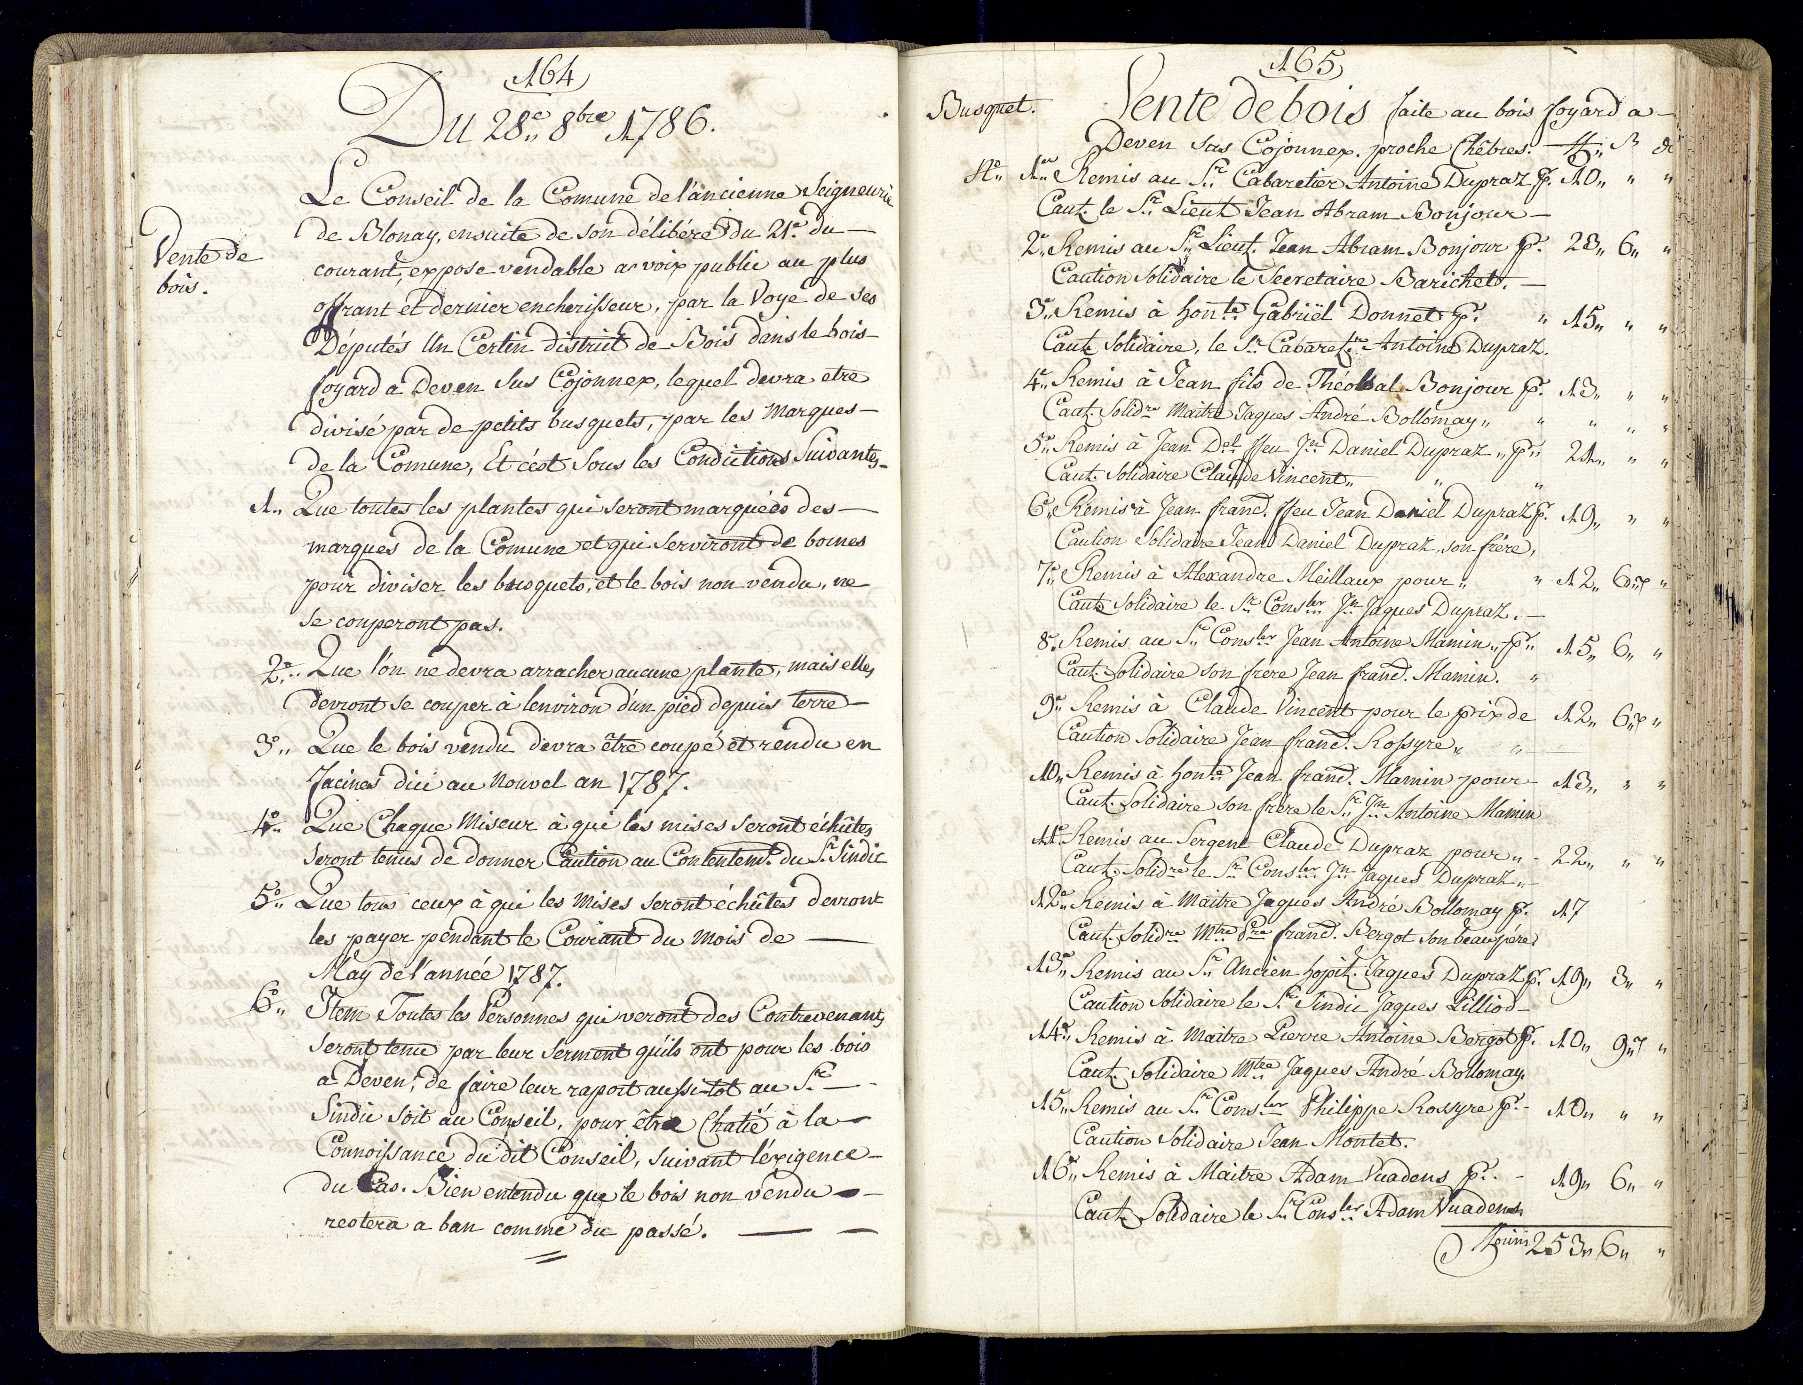 164
Du 28.e 8bre 1786.
Le Conseil de la Comune de l'ancienne Seigneurie
de Blonay, ensuite de son délibéré du 21.e du —
Vente de
bois.
courant, expose vendable a voix public au plus
offrant et dernier encherisseur, par la Voye de ses
Députés Un Certin district de Bois dans le bois —
foyard a Deven sus Cojonnex, lequel devra etre
divisé par de petits busquets, par les Marques —
de la Comune, Et cést sous les Condictions Suivantes —
1.. Que toutes les plantes qui seront marquéés des —
marques de la Comune et qui serviront de bornes
pour diviser les bosquets, et le bois non vendu, ne
se couperont pas.
2.o Que l'on ne devra arracher aucune plante, mais elles
devront se couper à lenviron d'un pied depuis terre —
3.o Que le bois vendu devra être coupé et rendu en
facines dici au Nouvel an 1787.
4.o Que Chaque Miseur à qui les mises seront échûtes
seront tenus de donner Caution au Contentemt. du Sr. Sindic
5.o Que tous ceux à qui les Mises seront échûtes devront
les payer pendant le Courant du Mois de —
May de l'année 1787.
6.o Item Toutes les Personnes qui veront des Contrevenants
seront tenu par leur serment qu'ils ont pour les bois
a Deven, de faire leur raport aussi-tot au Sr. —
Sindic soit au Conseil, pour être Chatié à la —
Connoissance du dit Conseil, suivant l'exigence —
du Cas. Bien entendu que le bois non vendu —
restera a ban comme du passé. — —
165
Busquet. Vente de bois faite au bois foyard a —
Deven sus Cojonnex. proche Chébres.
No. 1.er Remis au Sr. Cabaretier Antoine Dupraz p. 10,, " "
Caut. le Sr. Lieut. Jean Abram Bonjour —
2.e Remis au Sr. Lieut. Jean Abram Bonjour p. 28,, 6,, "
Caution Solidaire le Secretaire Barichet. —
3.e Remis à honte. Gabriël Donnet p. " 15,, " "
Caut. Solidaire, le Sr. Cabaretr. Antoine Dupraz.
4.e Remis à Jean fils de Théobal Bonjour p. 13,, " "
Caut. Solidre. Maitre Jaques André Bollomay,, " " " "
5.e Remis à Jean Del. ffeu Jn. Daniel Dupraz,, p,, 21,, " "
Caut. Solidaire Claude Vincent,, " "
6.e Remis à Jean franc. ffeu Jean Daniel Dupraz p. 19,, " "
Caution Solidaire Jean Daniel Dupraz, son frére,
7.e Remis à Alexandre Meillaux pour,, " 12,, 6 "
Caut. Solidaire le Sr. Consler. Jn. Jaques Dupraz. —
8.e Remis au Sr. Consler. Jean Antoine Mamin,, p,, 15,, 6,, "
Caut. Solidaire son frere Jean franc. Mamin. "
9.e Remis à Claude Vincent pour le prix de 12,, 6 "
Caution Solidaire Jean franc. Rossyre,, "
10.. Remis à honte. Jean franc. Mamin pour — 13,, " "
Caut. Solidaire son frére le Sr. Jn. Antoine Mamin
11.e Remis au Sergent Claude Dupraz pour,, - 22,, " "
Caut. Solidre. le Sr. Consler. Jn. Jaques Dupraz,, —
12.e Remis à Maitre Jaques André Bollomay p. 17
Caut. Solidre. Mtre. Pre. franc. Bergot son beaupére
13.e Remis au Sr. Ancien hopit. Jaques Dupraz p. 19,, 3,, "
Caution Solidaire le Sr. Sindic Jaques Pilliod —
14.e Remis à Maitre Pierre Antoine Bergot p. 10,, 9 "
Caut. Solidaire Mtre. Jaques André Bollomay.
15.. Remis au Sr. Consler. Philippe Rossyre p. - 10,, " "
Caution Solidaire Jean Montet.
16.e Remis à Maitre Adam Vuadens p. - 19,, 6,, "
Caut. Solidaire le Sr. Consler. Adam Vuadens
253,, 6,, "